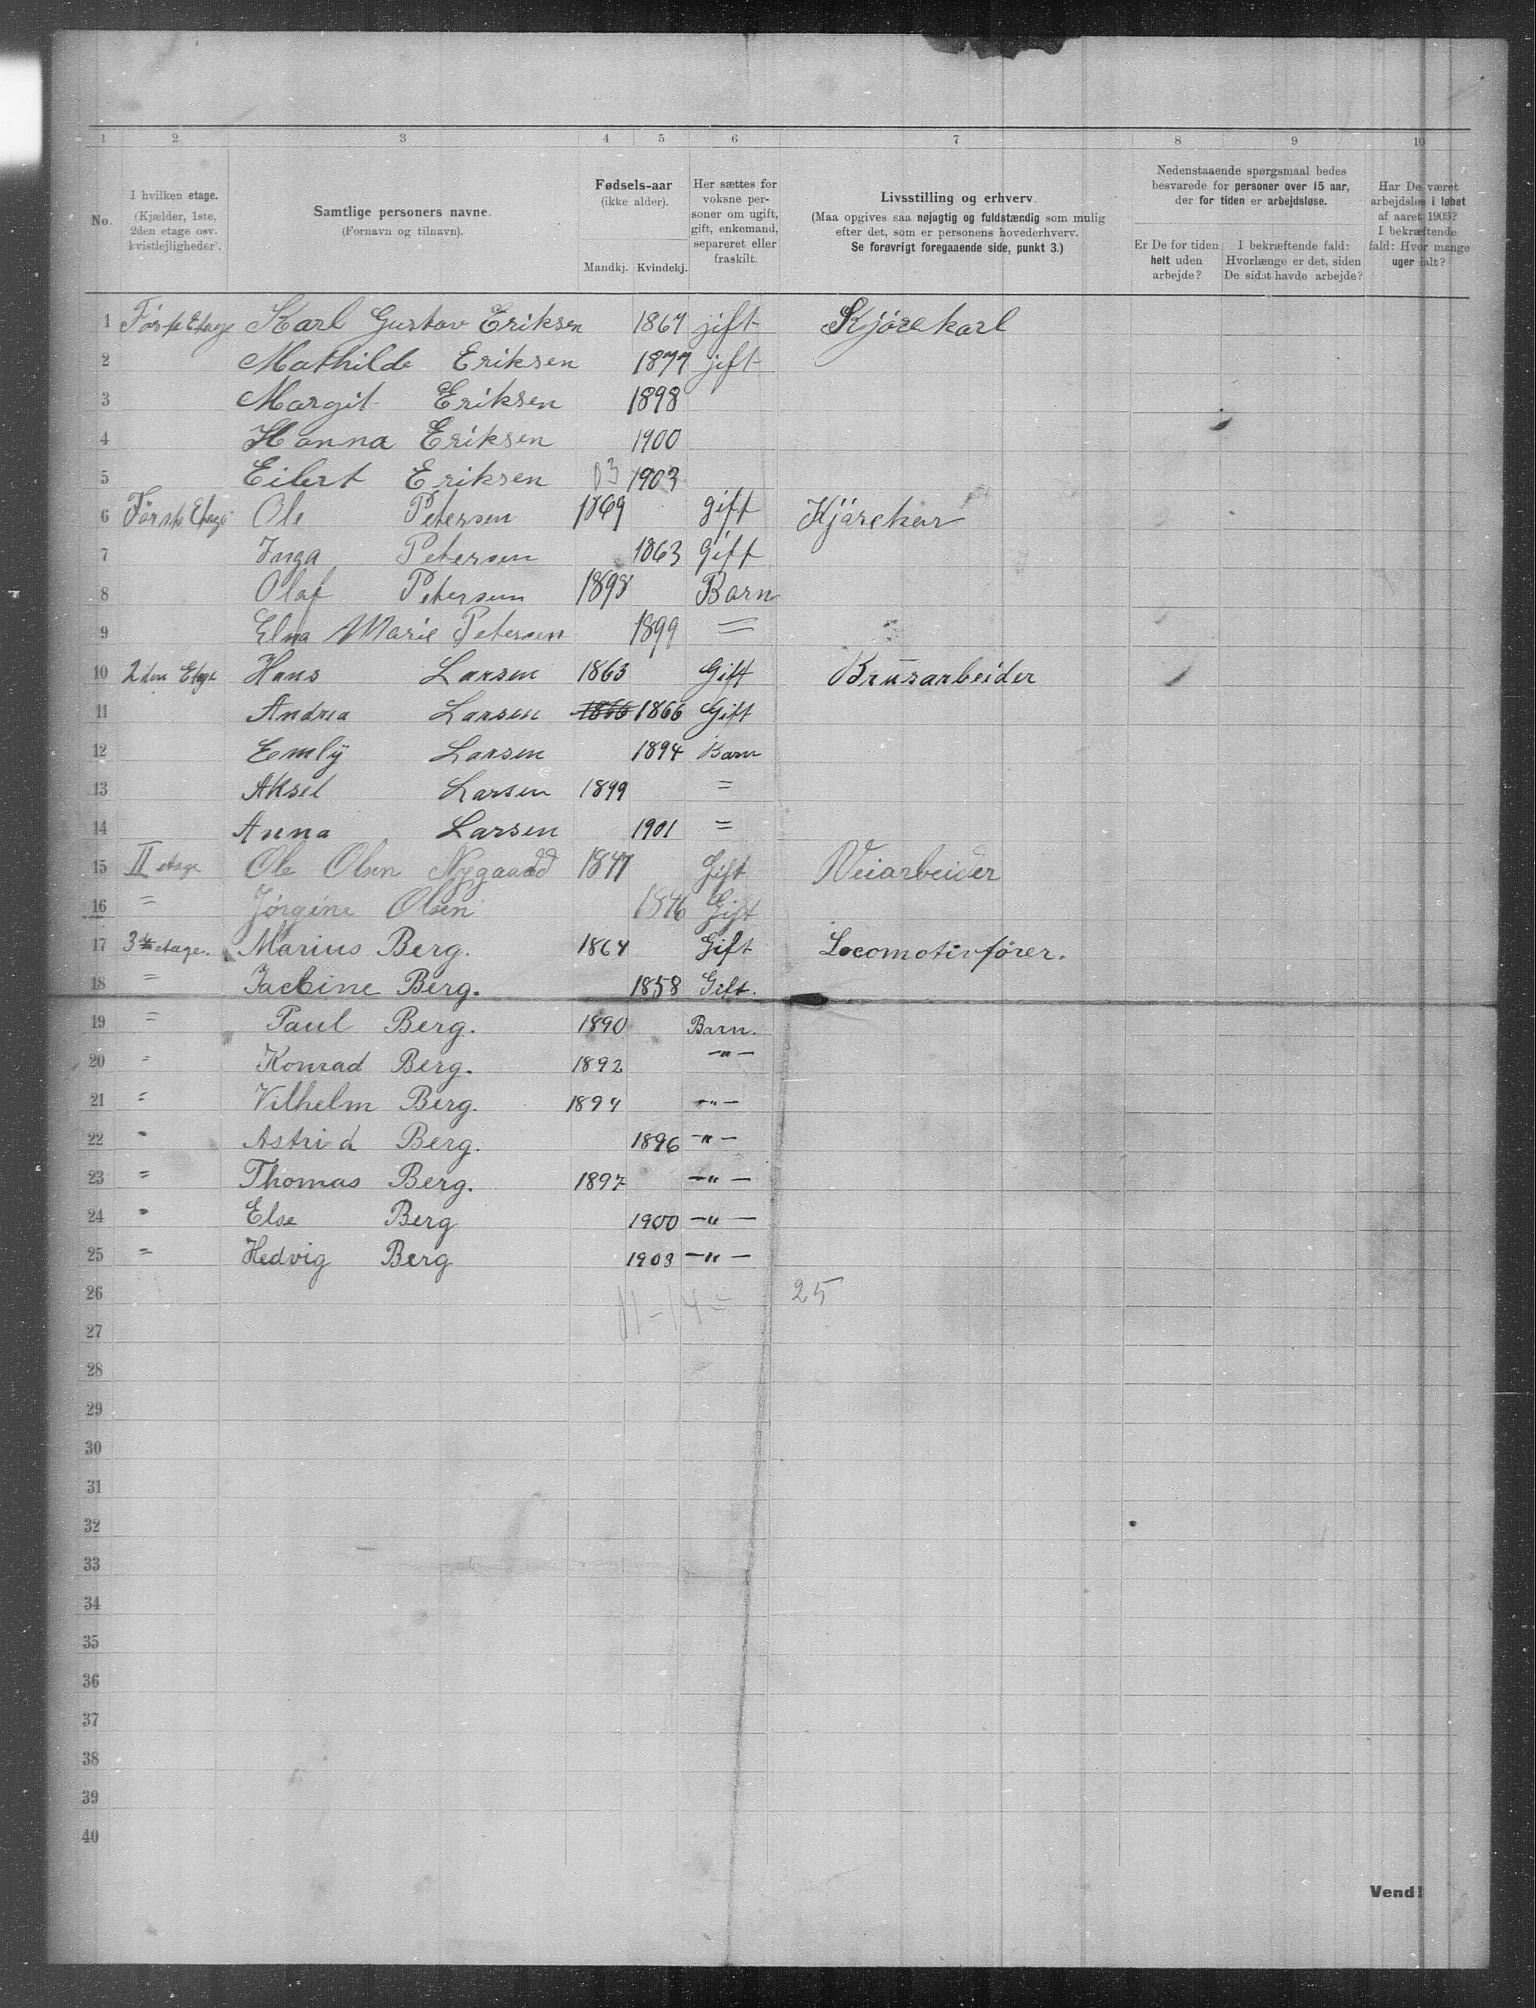 1 2 3 4 5 6 7 8 9 10
No.
I hvilken etage.
(Kjælder, 1ste,
2den etage osv.
kvistlejligheder.
Samtlige personers navne.
(Fornavn og tilnavn).
Fødsels-aar
(ikke alder).
Mandkj. Kvindekj.
Her sættes for
voksne per-
soner om ugift,
gift, enkemand,
separeret eller
fraskilt.
Livsstilling og erhverv.
(Maa opgives saa nøjagtig og fuldstændig som mulig
efter det, som er personens hovederhverv.
Se forøvrigt foregaaende side, punkt 3.)
Nedenstaaende spørgsmaal bedes
besvarede for personer over 15 aar,
der for tiden er arbejdsløse.
Er De for tiden
helt uden
arbejde?
I bekræftende fald:
Hvorlænge er det, siden
De sidst havde arbejde?
Har De været
arbejdsløs i løbet
af aaret 1903?
I bekræftende
fald: Hvor mange
uger ialt?
1 Første Etage Karl Gustav Eriksen 1867 jift Skjørekarl
2 Mathilde Eriksen 1877 jift
3 Margit Eriksen 1898
4 Hanna Eriksen 1900
5 Eilert Eriksen 03 1903
6 Første Etage Ole Petersen 1869 gift Kjörekar
7 Inga Petersen 1863 Gift
8 Olaf Petersen 1898 Barn
9 Elna Marie Petersen 1899 =
10 2den Etage Hans Larsen 1863 Gift Brusarbeider
11 Andrea Larsen 1866 1866 Gift
12 Emly Larsen 1894 Barn
13 Aksel Larsen 1899 =
14 Anna Larsen 1901 =
15 II etage Ole Olsen Nygaard 1847 Gift Veiarbeider
16 = Jørgine Olsen 1846 Gift
17 3de etage. Marius Berg. 1864 Gift Locomotivfører.
18 = Jacbine Berg. 1858 Gift.
19 = Paul Berg. 1890 Barn.
20 " Konrad Berg. 1892 —"—
21 " Vilhelm Berg. 1894 —"—
22 " Astrid Berg. 1896 —"—
23 " Thomas Berg. 1897 —"—
24 " Else Berg 1900 —"—
25 " Hedvig Berg 1903 —"—
26 11-14= 25
27
28
29
30
31
32
33
34
35
36
37
38
39
40
Vend!